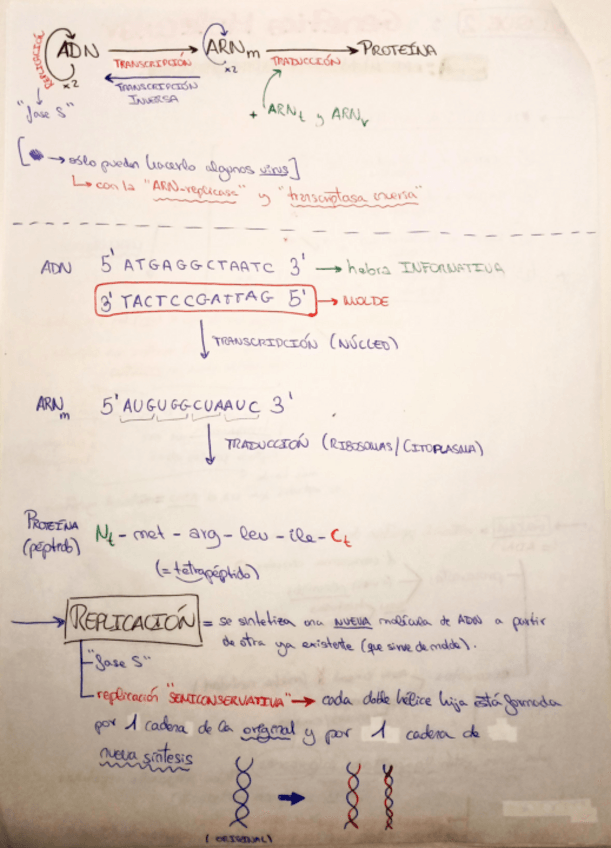 REPLICACIÓN ADN x2 TRANSCRIPCIÓN ARNm x2 TRADUCCIÓN PROTEÍNA
TRANSCRIPCIÓN INVERSA
"fase S"
+ ARNt y ARNr
[ → sólo pueden hacerlo algunos virus]
↳ con la "ARN-replicasa" y "transcriptasa inversa"
ADN 5' ATGAGGCTAATC 3' → hebra INFORMATIVA
3' TACTCCGATTAG 5' → MOLDE
TRANSCRIPCIÓN (NÚCLEO)
ARNm 5' AUGUGGCUAAUC 3'
TRADUCCIÓN (RIBOSOMAS/CITOPLASMA)
PROTEÍNA
(péptido) Nt - met - arg - leu - ile - Ct
(= tetrapéptido)
→ REPLICACIÓN = se sintetiza una NUEVA molécula de ADN a partir
de otra ya existente (que sirve de molde).
"fase S"
replicación "SEMICONSERVATIVA" → cada doble hélice hija está formada
por 1 cadena de la original y por 1 cadena de
nueva síntesis
(ORIGINAL)